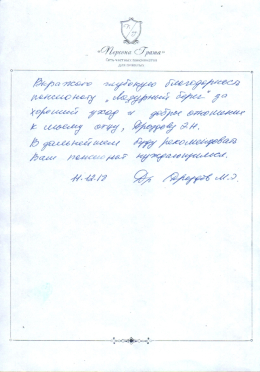 «Первопе Грата»
Выражаю глубокую благодарность
пансионату „Лазурный берег" за
хороший уход и доброе отношение
к моему отцу, Дроздову Э.Н.
В дальнейшем буду рекомендовать
Ваш пансионат нуждающимся.
11.12.17 Дроздов М.Э.